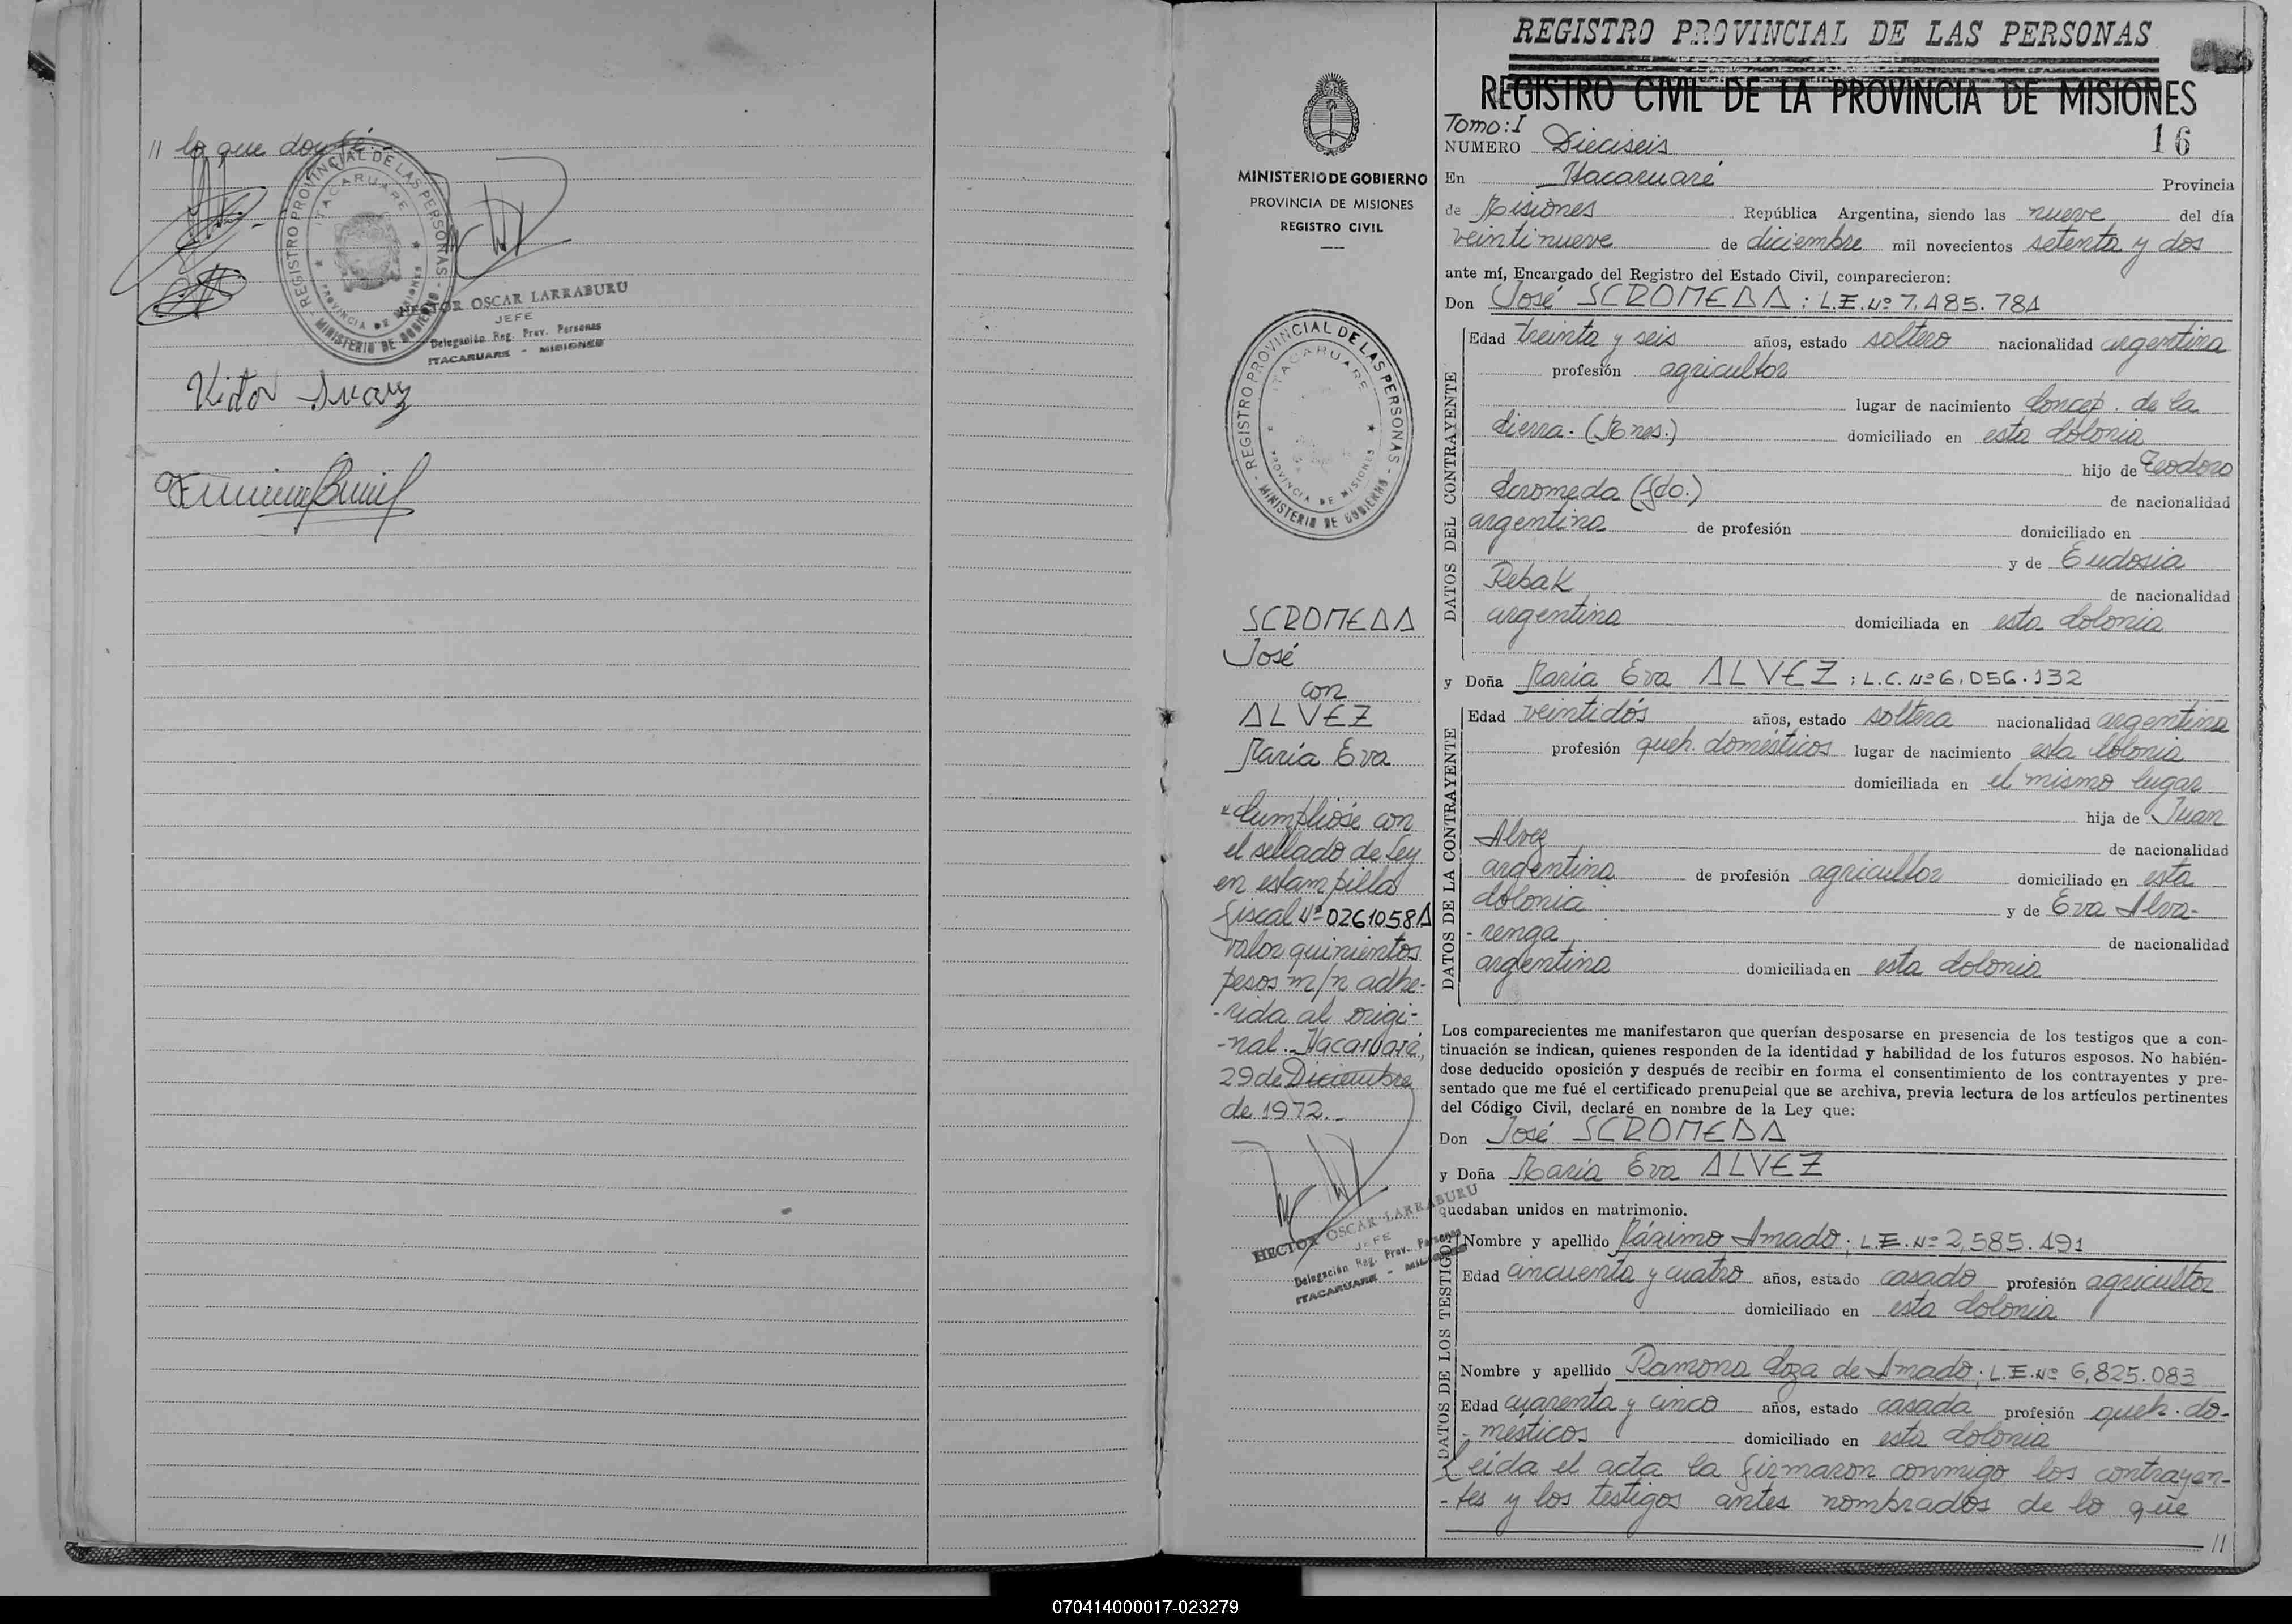 // lo que doy fé.-
REGISTRO PROVINCIAL DE LAS PERSONAS
ITACARUARE
PROVINCIA DE MISIONES
MINISTERIO DE GOBIERNO
HECTOR OSCAR LARRABURU
JEFE
Delegación Reg. Prov. Personas
ITACARUARE - MISIONES
MINISTERIO DE GOBIERNO
PROVINCIA DE MISIONES
REGISTRO CIVIL
REGISTRO PROVINCIAL DE LAS PERSONAS
ITACARUARE
PROVINCIA DE MISIONES
MINISTERIO DE GOBIERNO
SCROMEDA
José
con
ALVEZ
María Eva
"Cumplióse con
el sellado de Ley
en estampilla
fiscal Nº 02610584
valor quinientos
pesos m/n adhe-
-rida al origi-
-nal. Itacaruaré,
29 de Diciembre
de 1972.-
HECTOR OSCAR LARRABURU
JEFE
Delegación Reg. Prov. Personas
ITACARUARE - MISIONES
REGISTRO PROVINCIAL DE LAS PERSONAS
REGISTRO CIVIL DE LA PROVINCIA DE MISIONES
Tomo: I
16
NUMERO Dieciseis
En Itacaruaré Provincia
de Misiones República Argentina, siendo las nueve del día
veintinueve de diciembre mil novecientos setenta y dos
ante mí, Encargado del Registro del Estado Civil, comparecieron:
Don José SCROMEDA : L.E. Nº 7.485.784
DATOS DEL CONTRAYENTE
Edad treinta y seis años, estado soltero nacionalidad argentina
profesión agricultor
lugar de nacimiento Concep. de la
Sierra.- (Mnes.) domiciliado en esta Colonia
hijo de Teodoro
Scromeda (fdo.) de nacionalidad
argentina de profesión domiciliado en
y de Eudosia
Rebak de nacionalidad
argentina domiciliada en esta Colonia
y Doña María Eva ALVEZ : L.C. Nº 6.056.132
DATOS DE LA CONTRAYENTE
Edad veintidós años, estado soltera nacionalidad argentina
profesión queh. domésticos lugar de nacimiento esta Colonia
domiciliada en el mismo lugar
hija de Juan
Alvez de nacionalidad
argentina de profesión agricultor domiciliado en esta
Colonia y de Eva Alva-
-renga de nacionalidad
argentina domiciliada en esta Colonia
Los comparecientes me manifestaron que querían desposarse en presencia de los testigos que a con-
tinuación se indican, quienes responden de la identidad y habilidad de los futuros esposos. No habién-
dose deducido oposición y después de recibir en forma el consentimiento de los contrayentes y pre-
sentado que me fué el certificado prenupcial que se archiva, previa lectura de los artículos pertinentes
del Código Civil, declaré en nombre de la Ley que:
Don José SCROMEDA
y Doña María Eva ALVEZ
quedaban unidos en matrimonio.
DATOS DE LOS TESTIGOS
Nombre y apellido Máximo Amado; L.E. Nº 2.585.491
Edad cincuenta y cuatro años, estado casado profesión agricultor
domiciliado en esta Colonia
Nombre y apellido Ramona Loza de Amado; L.E. Nº 6.825.083
Edad cuarenta y cinco años, estado casada profesión queh. do-
-mésticos domiciliado en esta Colonia
Leida el acta la firmaron conmigo los contrayen-
-tes y los testigos antes nombrados de lo que
//
070414000017-023279